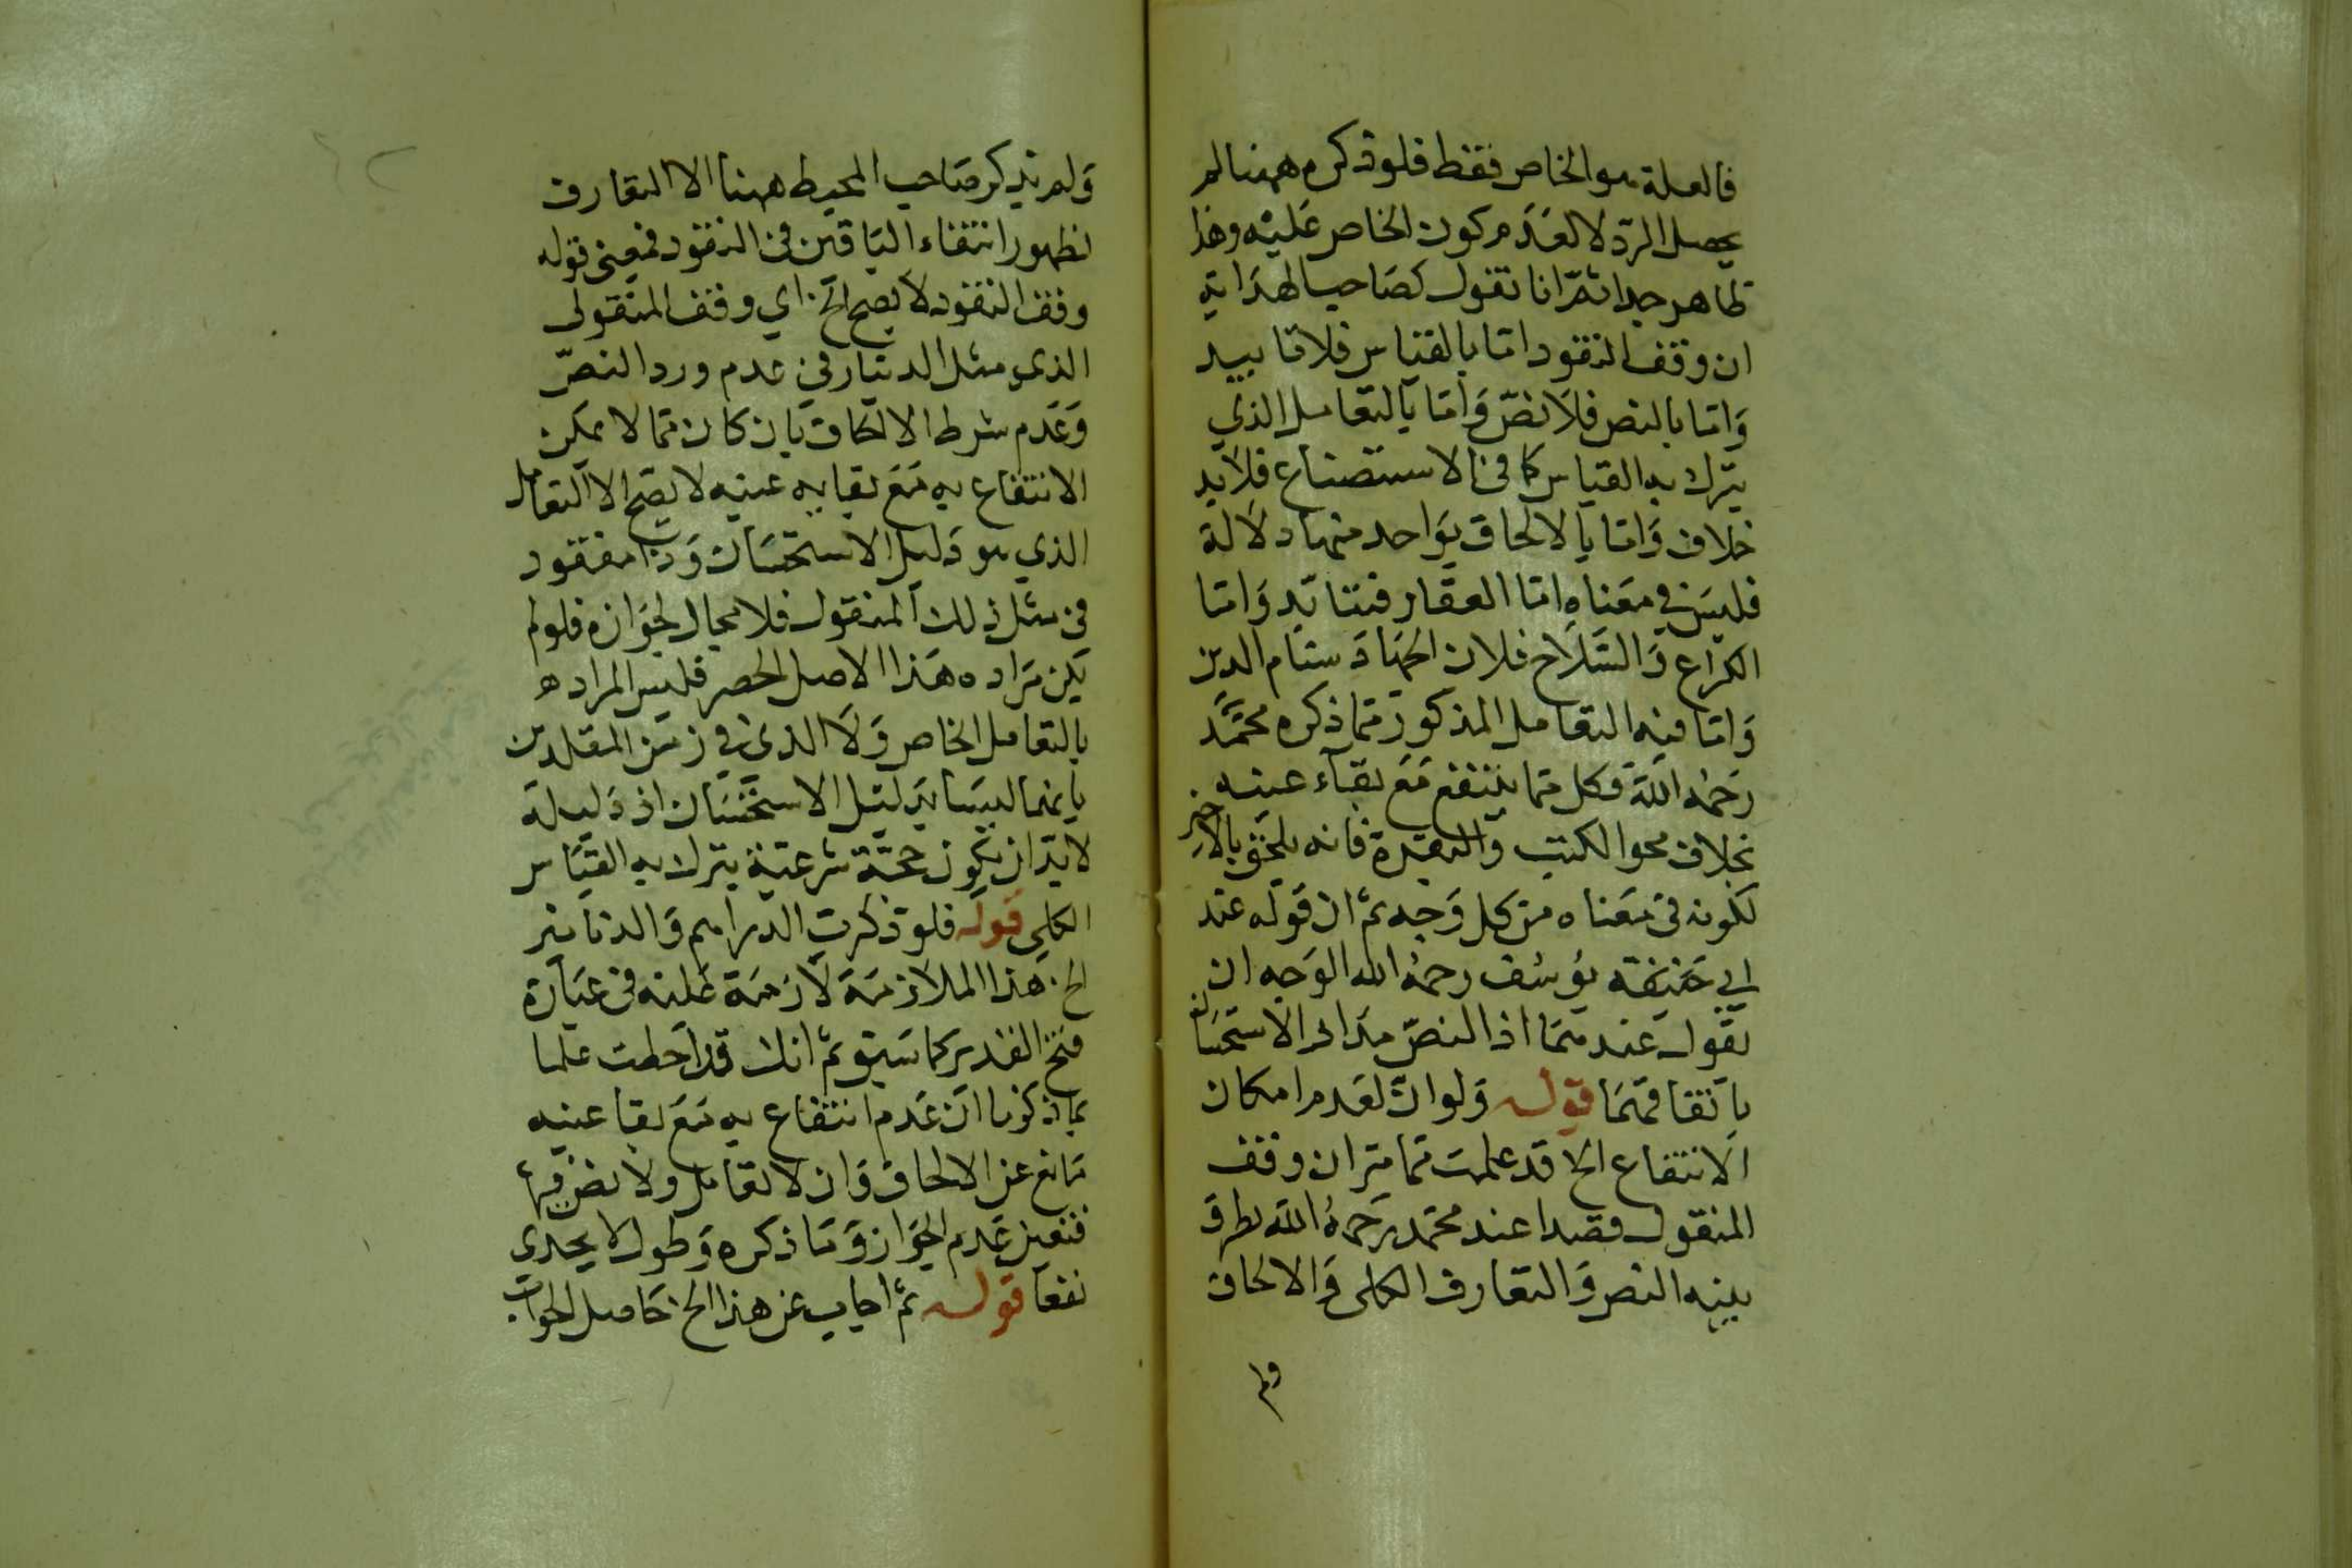 فالعلة هو الخاص فقط فلو ذكره ههنا لم
يحصل الرد لا لعدم كون الخاص عليه وهذا
ظاهر جدا ثم انا نقول كصاحب الهداية
ان وقف النقود اما بالقياس فلا تأبيد
وَاما بالنص فلا نصّ وَاما بالتعامل الذي
يترك به القياس كما في الاستصناع فلا بد
خلاف وَاما بالالحاق بوَاحد منها دلالة
فليسَ في معَناه اما العقار فبتأبّد وَاما
الكراع وَالسّلاح فلان الجهاد سنام الدين
وَاما فيه التعامل المذكور مما ذكره محمّد
رحمه اللّه فكل مما ينتفع مَعَ بقاء عينه
بخلاف نحو الكتب والبقرة فانه يلحق بالاخير
لكونه في معَناه من كل وَجه ثم ان قوله عند
ابي حَنيفة يوُسُف رحمهُ الله الوَجه ان
يقول عندهمَا اذ النصّ مدار الاستحسَان
باتفاقهمَا قوله وَلو ان لعَدم امكان
الانتفاع الخ قد علمت مما مر ان وقف
المنقول قصدا عند محمّد رحمهُ اللّه بطرق
بينه النص وَالتعارف الكلى وَالالحاق
ولم
وَلم يذكر صَاحب المحيط ههنا الا التعارف
لظهور انتفاء البَاقين في النقود فمعنى قوله
وقف النقود لا يصح الخ اي وقف المنقول
الذي مثل الدينار في عدم ورد النصّ
وَعَدم شرط الالحاق بان كان مما لا يمكن
الانتفاع به مَعَ بقايه عينه لا يصح الا التعامل
الذي هو دَليل الاستحسَان وَذا مفقود
في مثل ذلك المنقول فلا مجال لجوَازه فلو لم
يكن مرَاده هَذا الاصل الحصر فليس المراد ه
بالتعامل الخاص وَلَا الذي في زمَن المقلدين
بانهما ليسَا بدَليل الاستحسَان اذ دَليله
لا بدّ ان يكون حجّة شرعيّة يترك به القيَاس
الكلى قوله فلو ذكرت الدراهم وَالدنانير
الخ هذا الملازمَة لازمَة عَليه في عبَارة
فتح القدير كما سَبق ثم انك قد احَطت علما
بما ذكرنا ان عَدم انتفاع به مَعَ بقا عينه
مَانع عن الالحاق وَان لا تعَامل ولا نص فيها
فتعين عَدم الجَواز وَمَا ذكره وَطوله لا يجدي
نفعا قوله ثم اجاب عن هذا الخ حَاصل الجوَاب